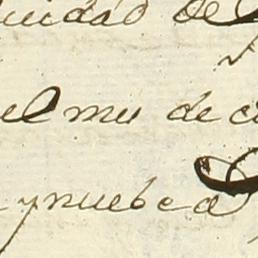 uidad de
el mes de
y nuebe a